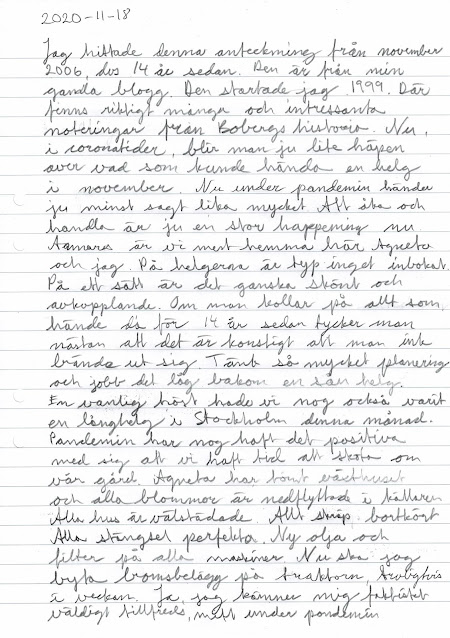 2020-11-18
Jag hittade denna anteckning från november
2006, dvs 14 år sedan. Den är från min
gamla blogg. Den startade jag 1999. Där
finns riktigt många och intressanta
noteringar från Bobergs historia. Nu,
i coronatider, blir man ju lite häpen
över vad som kunde hända en helg
i november. Nu under pandemin händer
ju minst sagt lika mycket. Att åka och
handla är ju en stor happening nu.
Annars är vi mest hemma här Agneta
och jag. På helgerna är typ inget inbokat.
På ett sätt är det ganska skönt och
avkopplande. Om man kollar på allt som
hände då för 14 år sedan tycker man
nästan att det är konstigt att man inte
brände ut sig. Tänk så mycket planering
och jobb det låg bakom en sån helg.
En vanlig höst hade vi nog också varit
en långhelg i Stockholm denna månad.
Pandemin har nog haft det positiva
med sig att vi haft tid att sköta om
vår gård. Agneta har tömt växthuset
och alla blommor är nedflyttade i källaren.
Alla hus är välstädade. Allt skräp bortkört
Alla stängsel perfekta. Ny olja och
filter på alla maskiner. Nu ska jag
byta bromsbelägg på traktorn,
i veckan. Ja, jag känner mig faktiskt
väldigt tillfreds, mitt under pandemin